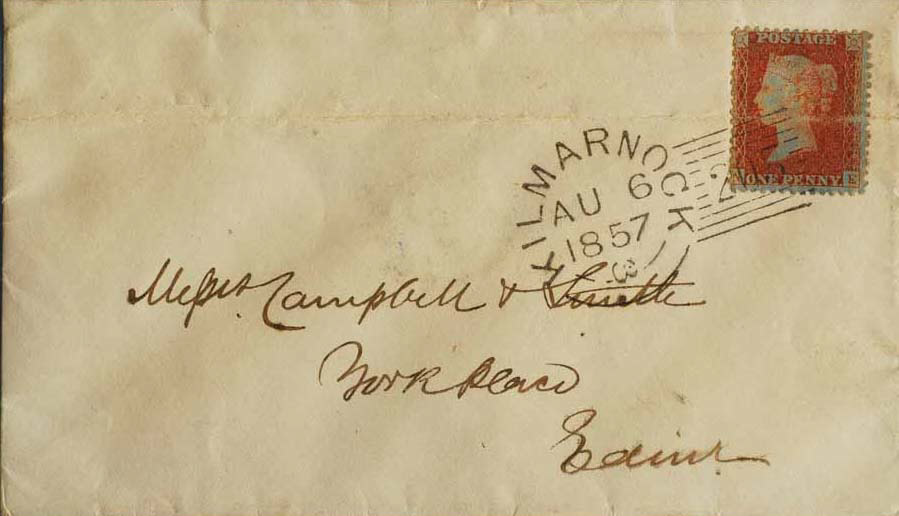 POSTAGE
ONE PENNY
KILMARNOCK
AU 6
1857
3
Messrs Campbell & Smith
York Place
Edinr